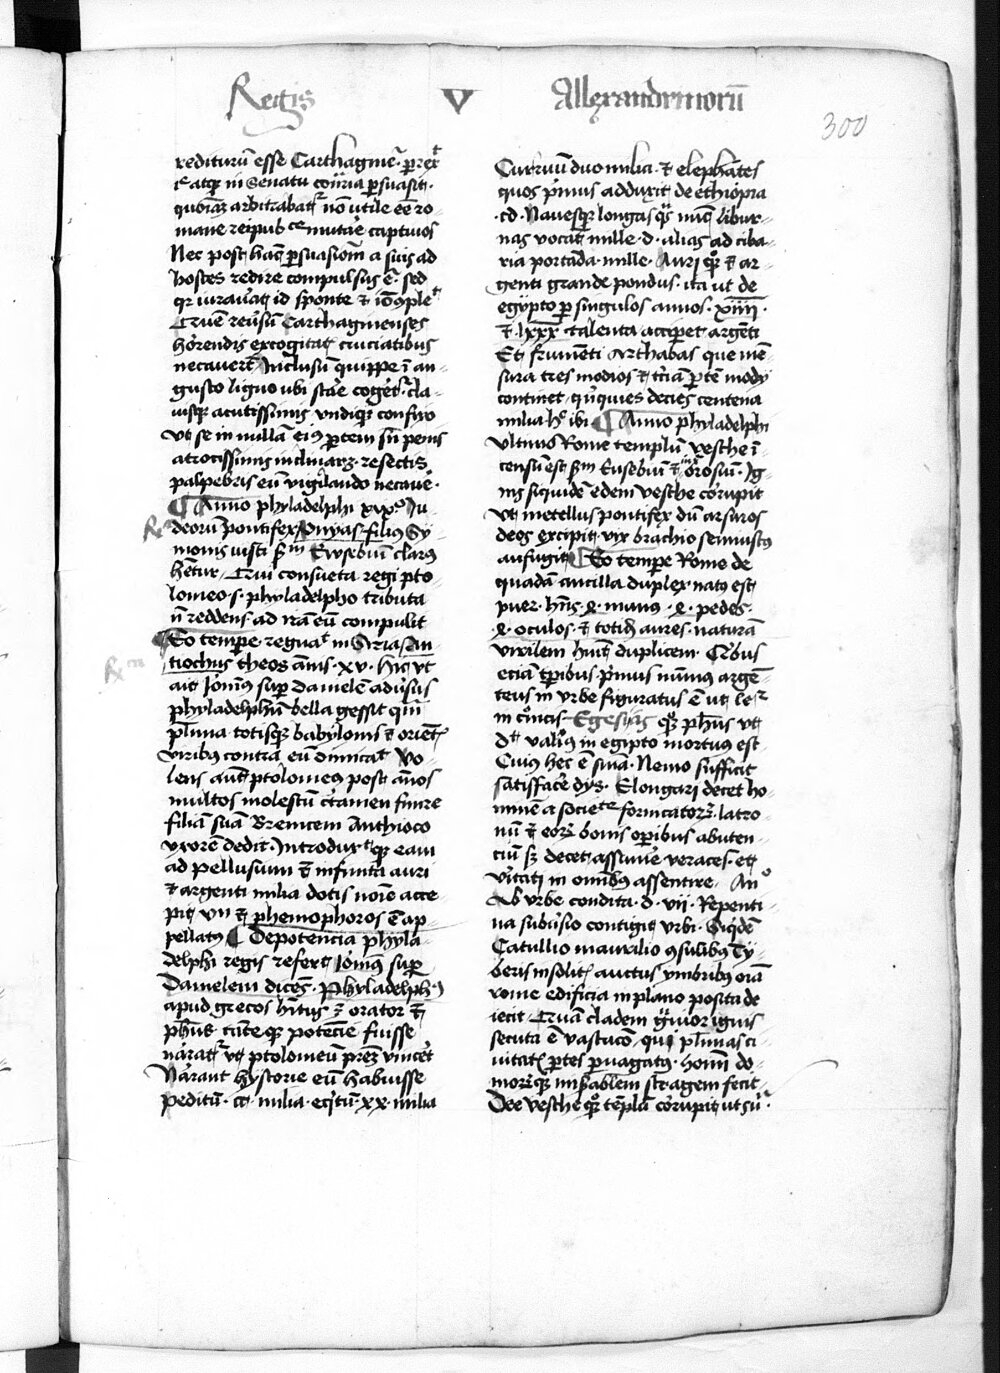 Regis V Allexandrinorū
300
rediturū esse Carthaginē. perrex
atque in Senatu cōtraria persuasit.
quoniā arbitrabatr nō utile eē ro-
mane reipub ce mutare captivos
Nec post hanc persuasionē a suis ad
hostes redire compulsus ē. sed
qr iuraverat id sponte et
Quē reversū Carthaginenses
horrendis excogitat cruciatibus
necaverūt Inclusū quippe ī an-
gusto ligno ubi stare cogeretr cla-
visque acutissimis undique confixo
Ut se in nullā eius partem sine penis
atrocissimis inclinaret. resectis
palpebris eū vigilando necave.
Anno phyladelphi xix° Iu-
deorū pontifex Onyas filius Sy-
monis iusti sm Eusebiū clarus
hētur. Qui consueta regi pto-
lomeo .s. phyladelpho tributa
nō reddens. ad irā eū compulit
Eo tempe. regnat in Siria An-
tiochus theos annis .xv. hic ut
ait Ieronimus super Danielē adversus
phyladelphū bella gessit quam
plurima. totisque babylonis et orientis
viribus contra eū dimicat Vo-
lens autē ptolomeus post annos
multos molestū certamen finire
filiā suā Brenicem Anthioco
uxorē dedit. Introduxitque eam
ad pellusium et infinita auri
et argenti milia dotis noīe acce-
pit Un et phernophoros ē ap-
pellatus De potencia phyla-
delphi regis refert Ieronimus super
Danielem dicēs. Phyladelphus
apud grecos
phūs tanteque potencie fuisse
narratr ut ptolomeū prez vinceret
Narrant hystorie eū habuisse
peditū .cc. milia. equitū xx milia
Curruū duo milia. et elephātes
quos primus adduxit de ethiopia
.cd. Navesque longas quas nunc libur-
nas vocant mille .d. alias ad ciba-
ria portāda. mille. Auri quoque et ar-
genti grande pondus. ita ut de
egypto per singulos annos. xiiii
et lxxx talenta acciperet argēti
Et frumēti arthabas que mē-
sura tres modios et terciā partē mody
continet. quinquies decies centena
milia. hec ibi Anno phyladelphi
ultimo Rome templū vesche ī-
censum est sm Eusebiū et orosiū. Ig-
nis siquidē edem vesche corrupit
Ut metellus pontifex dū arsuros
deos excipit vix brachio semiustus
aufugit Eo tempe Rome de
quadā ancilla duplex natus est
puer. hns .4. manus .4. pedes.
.4. oculos. et totidē aures. naturā
virilem hūs duplicem Quibus
etiā tpribus. primus nūmus argē-
teus in urbe figuratus ē
Egesias quoque phūs ut
dt valerius in egipto mortuus est
Cuius hec ē snīa. Nemo sufficit
satisfacere dys. Elongari decet ho-
minē a societe fornicatorum. latro-
nū et eorum bonis operibus abuten-
tiū sed decet assumere veraces. et
veritati in omnibus assentire. An°
Ab urbe condita .d. vii. Repenti-
na subversio contigit urbi. Siquidē
Catullio maualio consulibus Ty-
beris insolitis auctus ymbribus omnia
rome edificia in plano posita de-
iecit. Quam cladem gravior ignis
secuta ē vastacō, qui plurimas ci-
vitatis partes pervagatus. hominū do-
morumque miserabilem stragem fecit.
Dee vesche quoque templū corrupit ut su